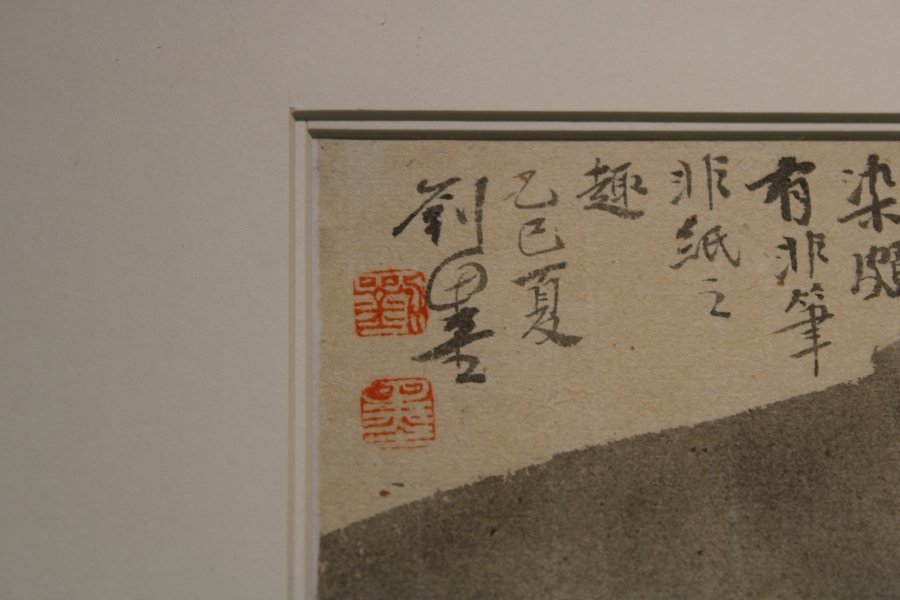 染頗
有非筆
非紙之
趣
乙巳夏
劉墨
劉
墨